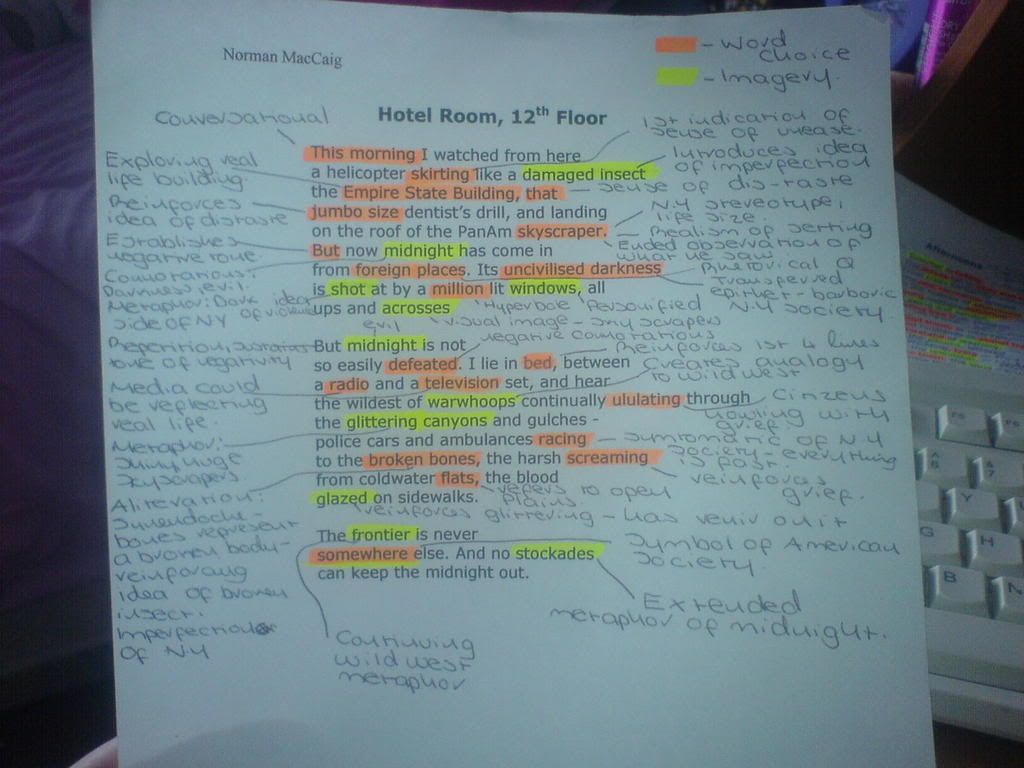 Norman MacCaig
- Word choice
- Imagery.
Hotel Room, 12th Floor
Conversational
1st indication of
sense of unease.
This morning I watched from here
a helicopter skirting like a damaged insect
the Empire State Building, that
jumbo size dentist's drill, and landing
on the roof of the PanAm skyscraper.
But now midnight has come in
from foreign places. Its uncivilised darkness
is shot at by a million lit windows, all
ups and acrosses
But midnight is not
so easily defeated. I lie in bed, between
a radio and a television set, and hear
the wildest of warwhoops continually ululating through
the glittering canyons and gulches -
police cars and ambulances racing
to the broken bones, the harsh screaming
from coldwater flats, the blood
glazed on sidewalks.
The frontier is never
somewhere else. And no stockades
can keep the midnight out.
Exploring real
life building.
Reinforces
idea of distaste
Establishes
negative tone.
Connotations:
Darkness, evil.
Metaphor: Dark idea
side of NY of violence
Repetition, sustains
tone of negativity
Media could
be reflecting
real life.
Metaphor:
Shiny huge
skyscrapers
Aliteration:
Synendoche -
bones represent
a broken body -
reinforcing
idea of broken
insect.
Imperfection
of N.Y
Introduces idea
of imperfection
- sense of dis-taste
N.Y stereotype,
life size.
- Realism of setting
Ended observation of
what he saw
Transferred
epithet - barbaric
N.Y society
Hyperbole
Personified
visual image - skyscrapers
evil
negative connotations
Reinforces 1st 4 lines
Creates analogy
to wild west
Citizens
howling with
grief.
- Symtomatic of N.Y
society - everything
is fast.
reinforces
grief.
refers to open
plains
reinforces glittering -
Symbol of American
Society.
Extended
metaphor of midnight.
Continuing
wild west
metaphor
Afternoons
F5
F6
6
7
Y
G
H
B
N